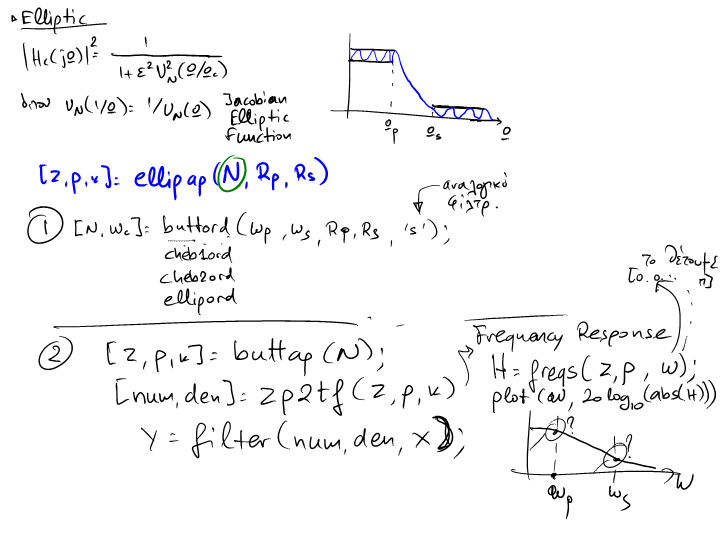 Elliptic
|Hc(jΩ)|² = 1 / (1 + ε² U²N(Ω/Ωc))
όπου UN(1/Ω) = 1/UN(Ω) Jacobian
Elliptic
Function
Ωp Ωs Ω
[z,p,k] = ellipap(N, Rp, Rs)
αναλογικό
φίλτρ.
① [N, wc] = buttord(wp, ws, Rp, Rs, 's');
cheb1ord
cheb2ord
ellipord
το θέτουμε
[0.0... π]
② [z,p,k] = buttap(N);
[num,den] = zp2tf(z,p,k)
Y = filter(num,den,x);
Frequency Response
H = freqs(z,p,w);
plot(w, 20log10(abs(H)))
? ?
wp ws w